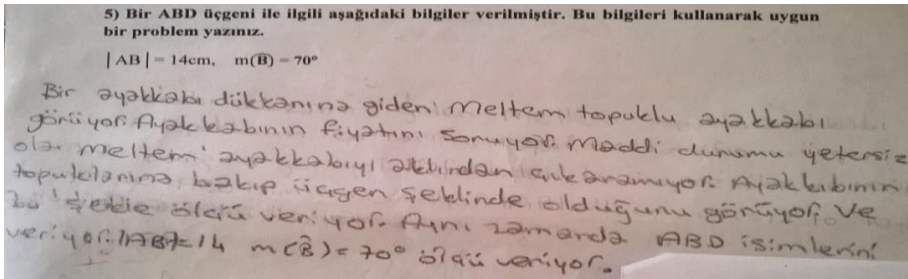 5) Bir ABD üçgeni ile ilgili aşağıdaki bilgiler verilmiştir. Bu bilgileri kullanarak uygun
bir problem yazınız.
|AB| = 14cm, m(B̂) = 70°
Bir ayakkabı dükkanına giden Meltem topuklu ayakkabı
görüyor. Ayakkabının fiyatını soruyor. Maddi durumu yetersiz
olan meltem ayakkabıyı aklından çıkaramıyor. Ayakkıbının
topuklarına bakıp üçgen şeklinde olduğunu görüyor. Ve
bu şekle ölçü veriyor. Aynı zamanda ABD isimlerini
veriyor. |AB|=14 m(B̂)=70° ölçü veriyor.